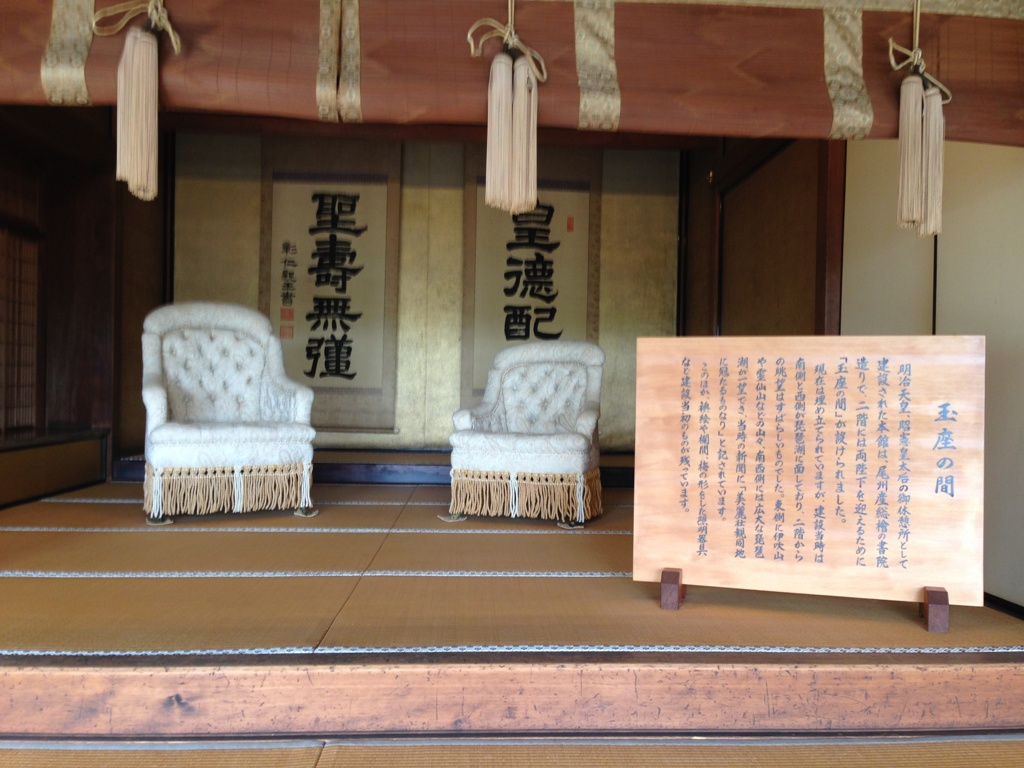 皇德配
聖壽無彊
彰仁親王書
玉座の間
明治天皇・昭憲皇太后の御休憩所として
建設された本館は、尾州産総檜の書院
造りで、二階には両陛下を迎えるために
「玉座の間」が設けられました。
現在は埋め立てられていますが、建設当時は
南側と西側が琵琶湖に面しており、二階から
の眺望はすばらしいものでした。東側に伊吹山
や霊仙山などの山々、南西側には広大な琵琶
湖が一望でき、当時の新聞に「美麗壮観同地
に冠たるものなり」と記されています。
このほか、襖絵や欄間、梅の形をした照明器具
など建設当初のものが残っています。